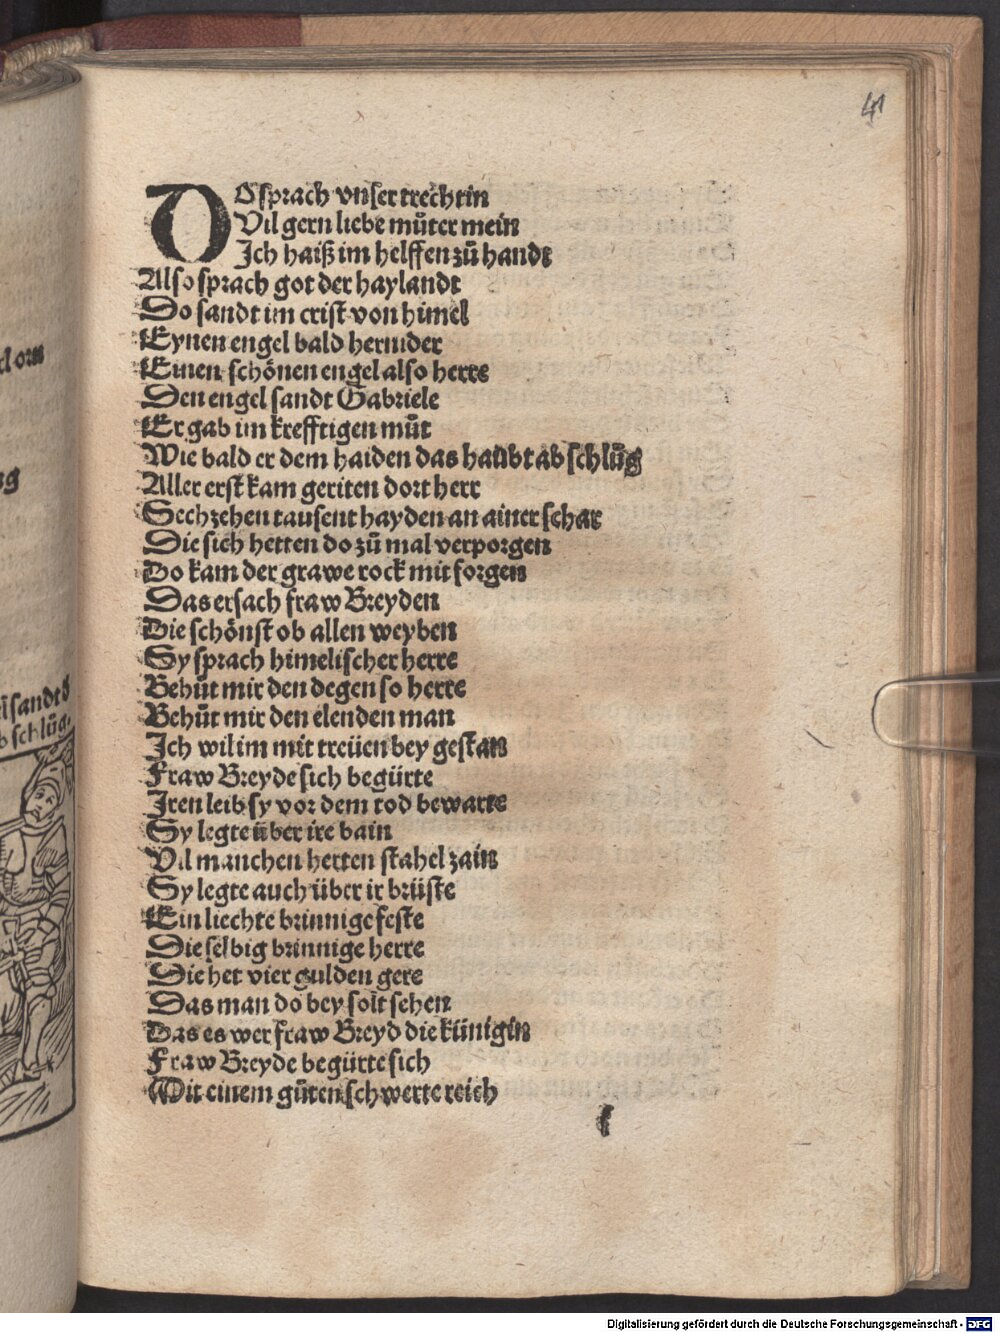 41
DO sprach vnser trechtin
Vil gern liebe můter mein
Jch haiß im helffen zů handt
Also sprach got der haylandt
Do sandt im crist von himel
Eynen engel bald hernider
Einen schönen engel also herre
Den engel sandt Gabriele
Er gab im krefftigen můt
Wie bald er dem haiden das haubt ab schlůg
Aller erst kam geriten dort herr
Sechzehen tausent hayden an ainer schar
Die sich hetten do zů mal verporgen
Do kam der grawe rock mit sorgen
Das ersach fraw Breyden
Die schönst ob allen weyben
Sy sprach himelischer herre
Behůt mir den degen so herre
Behůt mir den elenden man
Jch wil im mit treüen bey gestan
Fraw Breyde sich begürte
Jren leib sy vor dem tod bewarte
Sy legte über ire bain
Vil manchen herten stahel zain
Sy legte auch über ir brüste
Ein liechte brinnige feste
Die selbig brinnige herre
Die het vier gulden gere
Das man do bey solt sehen
Das es wer fraw Breyd die künigin
Fraw Breyde begürte sich
Mit einem gůten schwerte reich
dorn
sandt
schlůg.
Digitalisierung gefördert durch die Deutsche Forschungsgemeinschaft - DFG